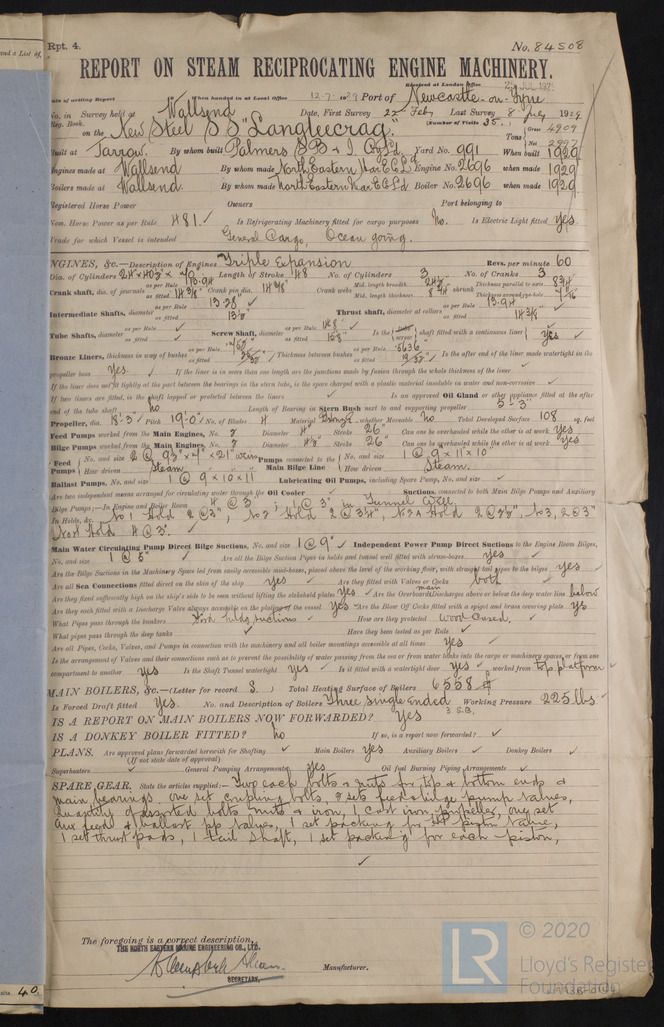 Rpt. 4.
No. 84508
REPORT ON STEAM RECIPROCATING ENGINE MACHINERY.
Received at London Office
Date of writing Report When handed in at Local Office 12-7-1929 Port of Newcastle-on-Tyne
No. in Survey held at Wallsend Date, First Survey 22nd Feb Last Survey 8 July 1929
Reg. Book. (Number of Visits 35)
on the New Steel S S "Langleecrag" Tons Gross 4909
Net
Built at Jarrow By whom built Palmers S.B. & I. Coy Ld Yard No. 991 When built 1929
Engines made at Wallsend By whom made North Eastern Mar. E. C. Ld Engine No. 2696 when made 1929
Boilers made at Wallsend. By whom made North Eastern Mar. E. C. Ld Boiler No. 2696 when made 1929
Registered Horse Power Owners Port belonging to
Nom. Horse Power as per Rule 481. Is Refrigerating Machinery fitted for cargo purposes No. Is Electric Light fitted yes
Trade for which Vessel is intended General Cargo, Ocean going.
ENGINES, &c.—Description of Engines Triple Expansion Revs. per minute 60
Dia. of Cylinders Length of Stroke 48 No. of Cylinders 3 No. of Cranks 3
Crank shaft, dia. of journals as per Rule as fitted 14 3/8" Crank pin dia. 14 3/8" Crank webs Mid. length breadth Mid. length thickness 8 3/4" shrunk Thickness parallel to axis 8 3/4" Thickness around eye-hole
Intermediate Shafts, diameter as per Rule 13.28" as fitted Thrust shaft, diameter at collars as per Rule 13.94 as fitted 14 3/8"
Tube Shafts, diameter as per Rule as fitted Screw Shaft, diameter as per Rule as fitted Is the screw shaft fitted with a continuous liner yes
Bronze Liners, thickness in way of bushes as per Rule as fitted Thickness between bushes as per Rule .5636 as fitted Is the after end of the liner made watertight in the
propeller boss Yes. If the liner is in more than one length are the junctions made by fusion through the whole thickness of the liner
If the liner does not fit tightly at the part between the bearings in the stern tube, is the space charged with a plastic material insoluble in water and non-corrosive
If two liners are fitted, is the shaft lapped or protected between the liners Is an approved Oil Gland or other appliance fitted at the after
end of the tube shaft no Length of Bearing in Stern Bush next to and supporting propeller 5'-3"
Propeller, dia. 18'-3" Pitch 19'-0" No. of Blades 4 Material Bronze whether Moveable no Total Developed Surface 108 sq. feet
Feed Pumps worked from the Main Engines, No. 2 Diameter 4" Stroke 26" Can one be overhauled while the other is at work yes
Bilge Pumps worked from the Main Engines, No. 2 Diameter 4 1/2" Stroke 26" Can one be overhauled while the other is at work yes
Feed Pumps No. and size 2 @ 9 1/2" × 7" × 21" How driven Steam Pumps connected to the Main Bilge Line No. and size 1 @ 9" × 11 × 10" How driven Steam.
Ballast Pumps, No. and size 1 @ 9 × 10 × 11 Lubricating Oil Pumps, including Spare Pump, No. and size
Are two independent means arranged for circulating water through the Oil Cooler Suctions, connected to both Main Bilge Pumps and Auxiliary
Bilge Pumps;—In Engine and Boiler Room 4 @ 3"; 1 @ 3" in Tunnel Well
In Holds, &c. No 1 Hold 2 @ 3", No 2 Hold 2 @ 3 1/2", No 2A Hold 2 @ 2 1/2", No 3, 2 @ 3"
No 4 Hold 4 @ 3".
Main Water Circulating Pump Direct Bilge Suctions, No. and size 1 @ 9" Independent Power Pump Direct Suctions to the Engine Room Bilges,
No. and size 1 @ 5" Are all the Bilge Suction Pipes in holds and tunnel well fitted with strum-boxes yes
Are the Bilge Suctions in the Machinery Space led from easily accessible mud-boxes, placed above the level of the working floor, with straight tail pipes to the bilges yes
Are all Sea Connections fitted direct on the skin of the ship yes Are they fitted with Valves or Cocks both
Are they fixed sufficiently high on the ship's side to be seen without lifting the stokehold plates yes Are the Overboard Discharges above or below the deep water line below
Are they each fitted with a Discharge Valve always accessible on the plating of the vessel yes Are the Blow Off Cocks fitted with a spigot and brass covering plate yes
What Pipes pass through the bunkers Hold bilge suctions How are they protected Wood Cased,
What pipes pass through the deep tanks Have they been tested as per Rule
Are all Pipes, Cocks, Valves, and Pumps in connection with the machinery and all boiler mountings accessible at all times yes
Is the arrangement of Valves and their connections such as to prevent the possibility of water passing from the sea or from water tanks into the cargo or machinery spaces, or from one
compartment to another yes Is the Shaft Tunnel watertight yes Is it fitted with a watertight door yes worked from top platform
MAIN BOILERS, &c.—(Letter for record S.) Total Heating Surface of Boilers 6558
Is Forced Draft fitted Yes. No. and Description of Boilers Three Single Ended Working Pressure 225 lbs
3 S.B.
IS A REPORT ON MAIN BOILERS NOW FORWARDED? Yes
IS A DONKEY BOILER FITTED? no If so, is a report now forwarded?
PLANS. Are approved plans forwarded herewith for Shafting Main Boilers yes Auxiliary Boilers Donkey Boilers
(If not state date of approval)
Superheaters General Pumping Arrangements yes Oil fuel Burning Piping Arrangements
SPARE GEAR. State the articles supplied:— Two each bolts & nuts for top & bottom ends &
main bearings, one set coupling bolts, 2 sets feed & bilge pump valves,
Quantity of assorted bolts nuts & iron, 1 cast iron propeller, one set
aux feed & ballast pp valves, 1 set packing for piston valve,
1 set thrust pads, 1 tail shaft, 1 set packing for each piston,
The foregoing is a correct description,
THE NORTH EASTERN MARINE ENGINEERING CO., LTD.
SECRETARY.
Manufacturer.
© 2020
LR
Lloyd's Register
Foundation